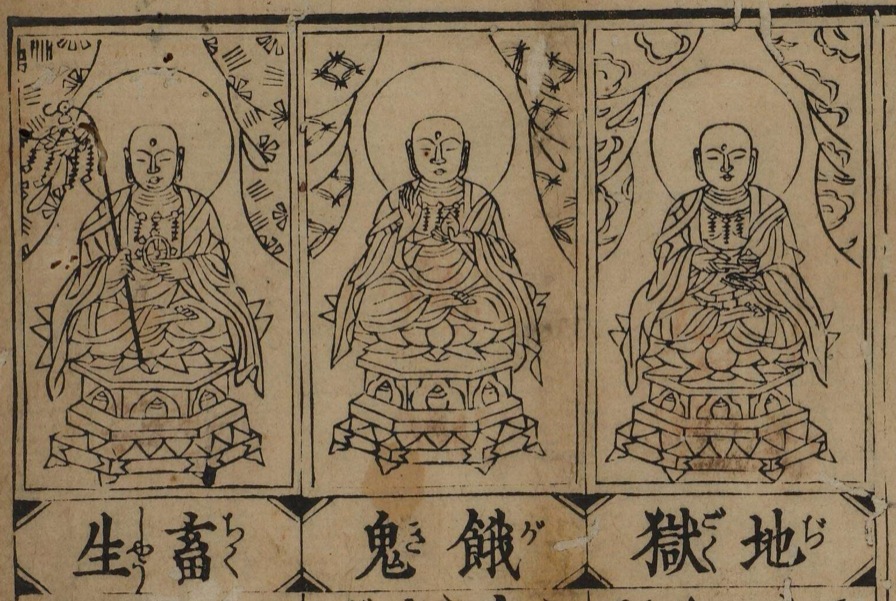 地獄
ぢごく
餓鬼
がき
畜生
ちくしやう